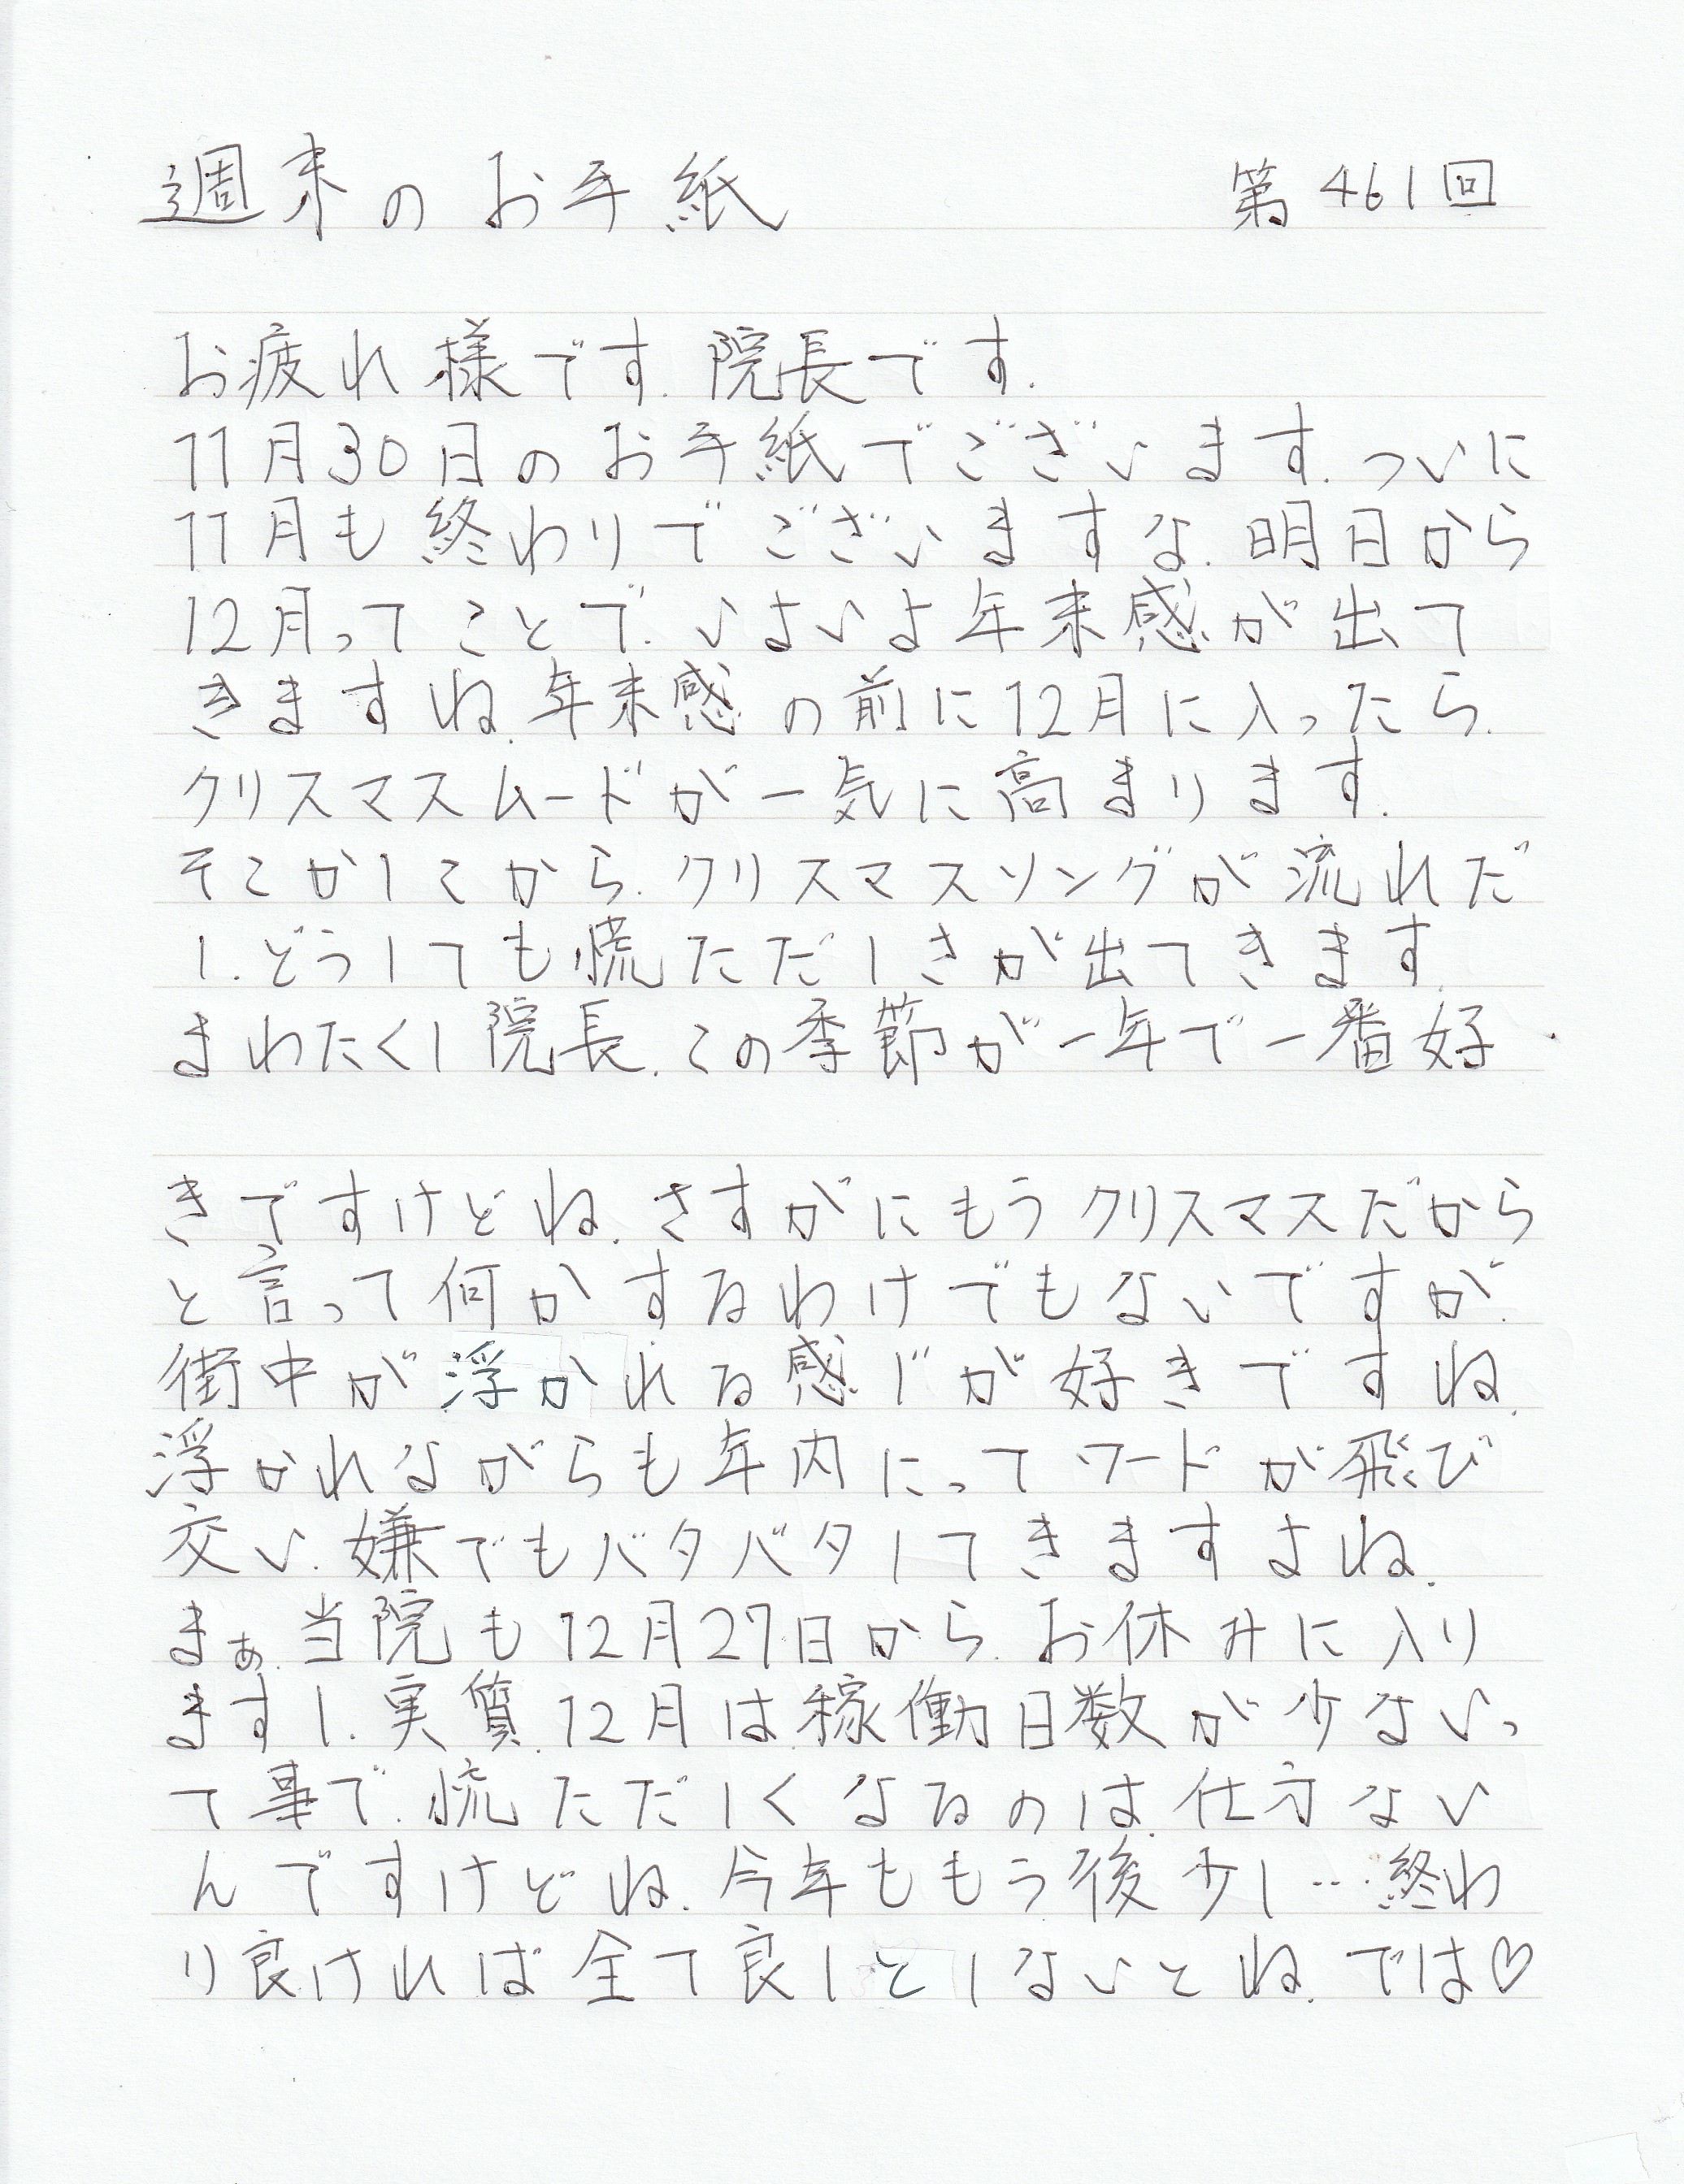 週末のお手紙 第461回
お疲れ様です.院長です.
11月30日のお手紙でございます.ついに
11月も終わりでございますな.明日から
12月ってことで.いよいよ年末感が出て
きますね.年末感の前に12月に入ったら.
クリスマスムードが一気に高まります.
そこかしこから.クリスマスソングが流れだ
し.どうしても慌ただしさが出てきます.
まわたくし院長.この季節が一年で一番好
きですけどね.さすがにもうクリスマスだから
と言って何かするわけでもないですが.
街中が浮かれる感じが好きですね.
浮かれながらも年内にってワードが飛び
交い.嫌でもバタバタしてきますよね.
まぁ.当院も12月27日から.お休みに入り
ますし.実質.12月は稼働日数が少ないっ
て事で.慌ただしくなるのは.仕方ない
んですけどね.今年ももう後少し….終わ
り良ければ全て良しとしないとね.では♡